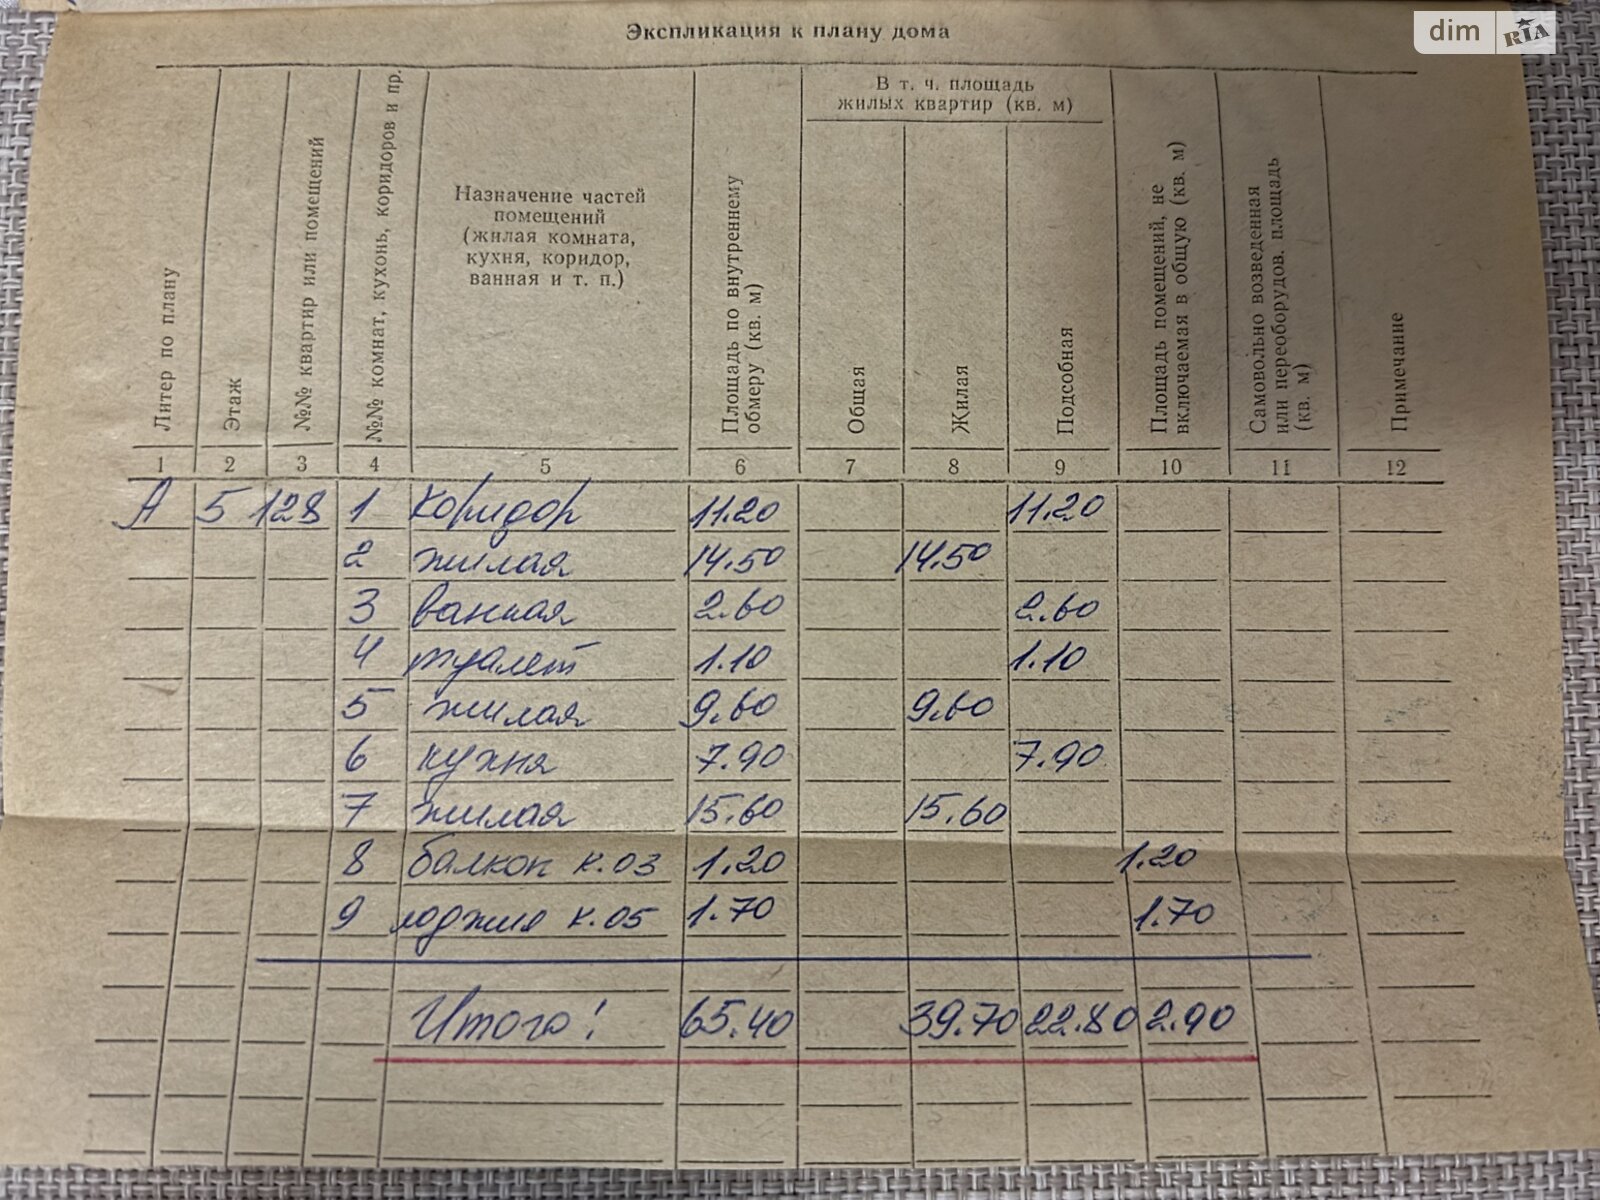 dim RIA
Экспликация к плану дома
Литер по плану
Этаж
№№ квартир или помещений
№№ комнат, кухонь, коридоров и пр.
Назначение частей
помещений
(жилая комната,
кухня, коридор,
ванная и т. п.)
Площадь по внутреннему
обмеру (кв. м)
В т. ч. площадь
жилых квартир (кв. м)
Общая
Жилая
Подсобная
Площадь помещений, не
включаемая в общую (кв. м)
Самовольно возведенная
или переоборудов. площадь
(кв. м)
Примечание
1 2 3 4 5 6 7 8 9 10 11 12
А 5 128 1 коридор 11.20 11.20
2 жилая 14.50 14.50
3 ванная 2.60 2.60
4 туалет 1.10 1.10
5 жилая 9.60 9.60
6 кухня 7.90 7.90
7 жилая 15.60 15.60
8 балкон к.03 1.20 1.20
9 лоджия к.05 1.70 1.70
Итого! 65.40 39.70 22.80 2.90